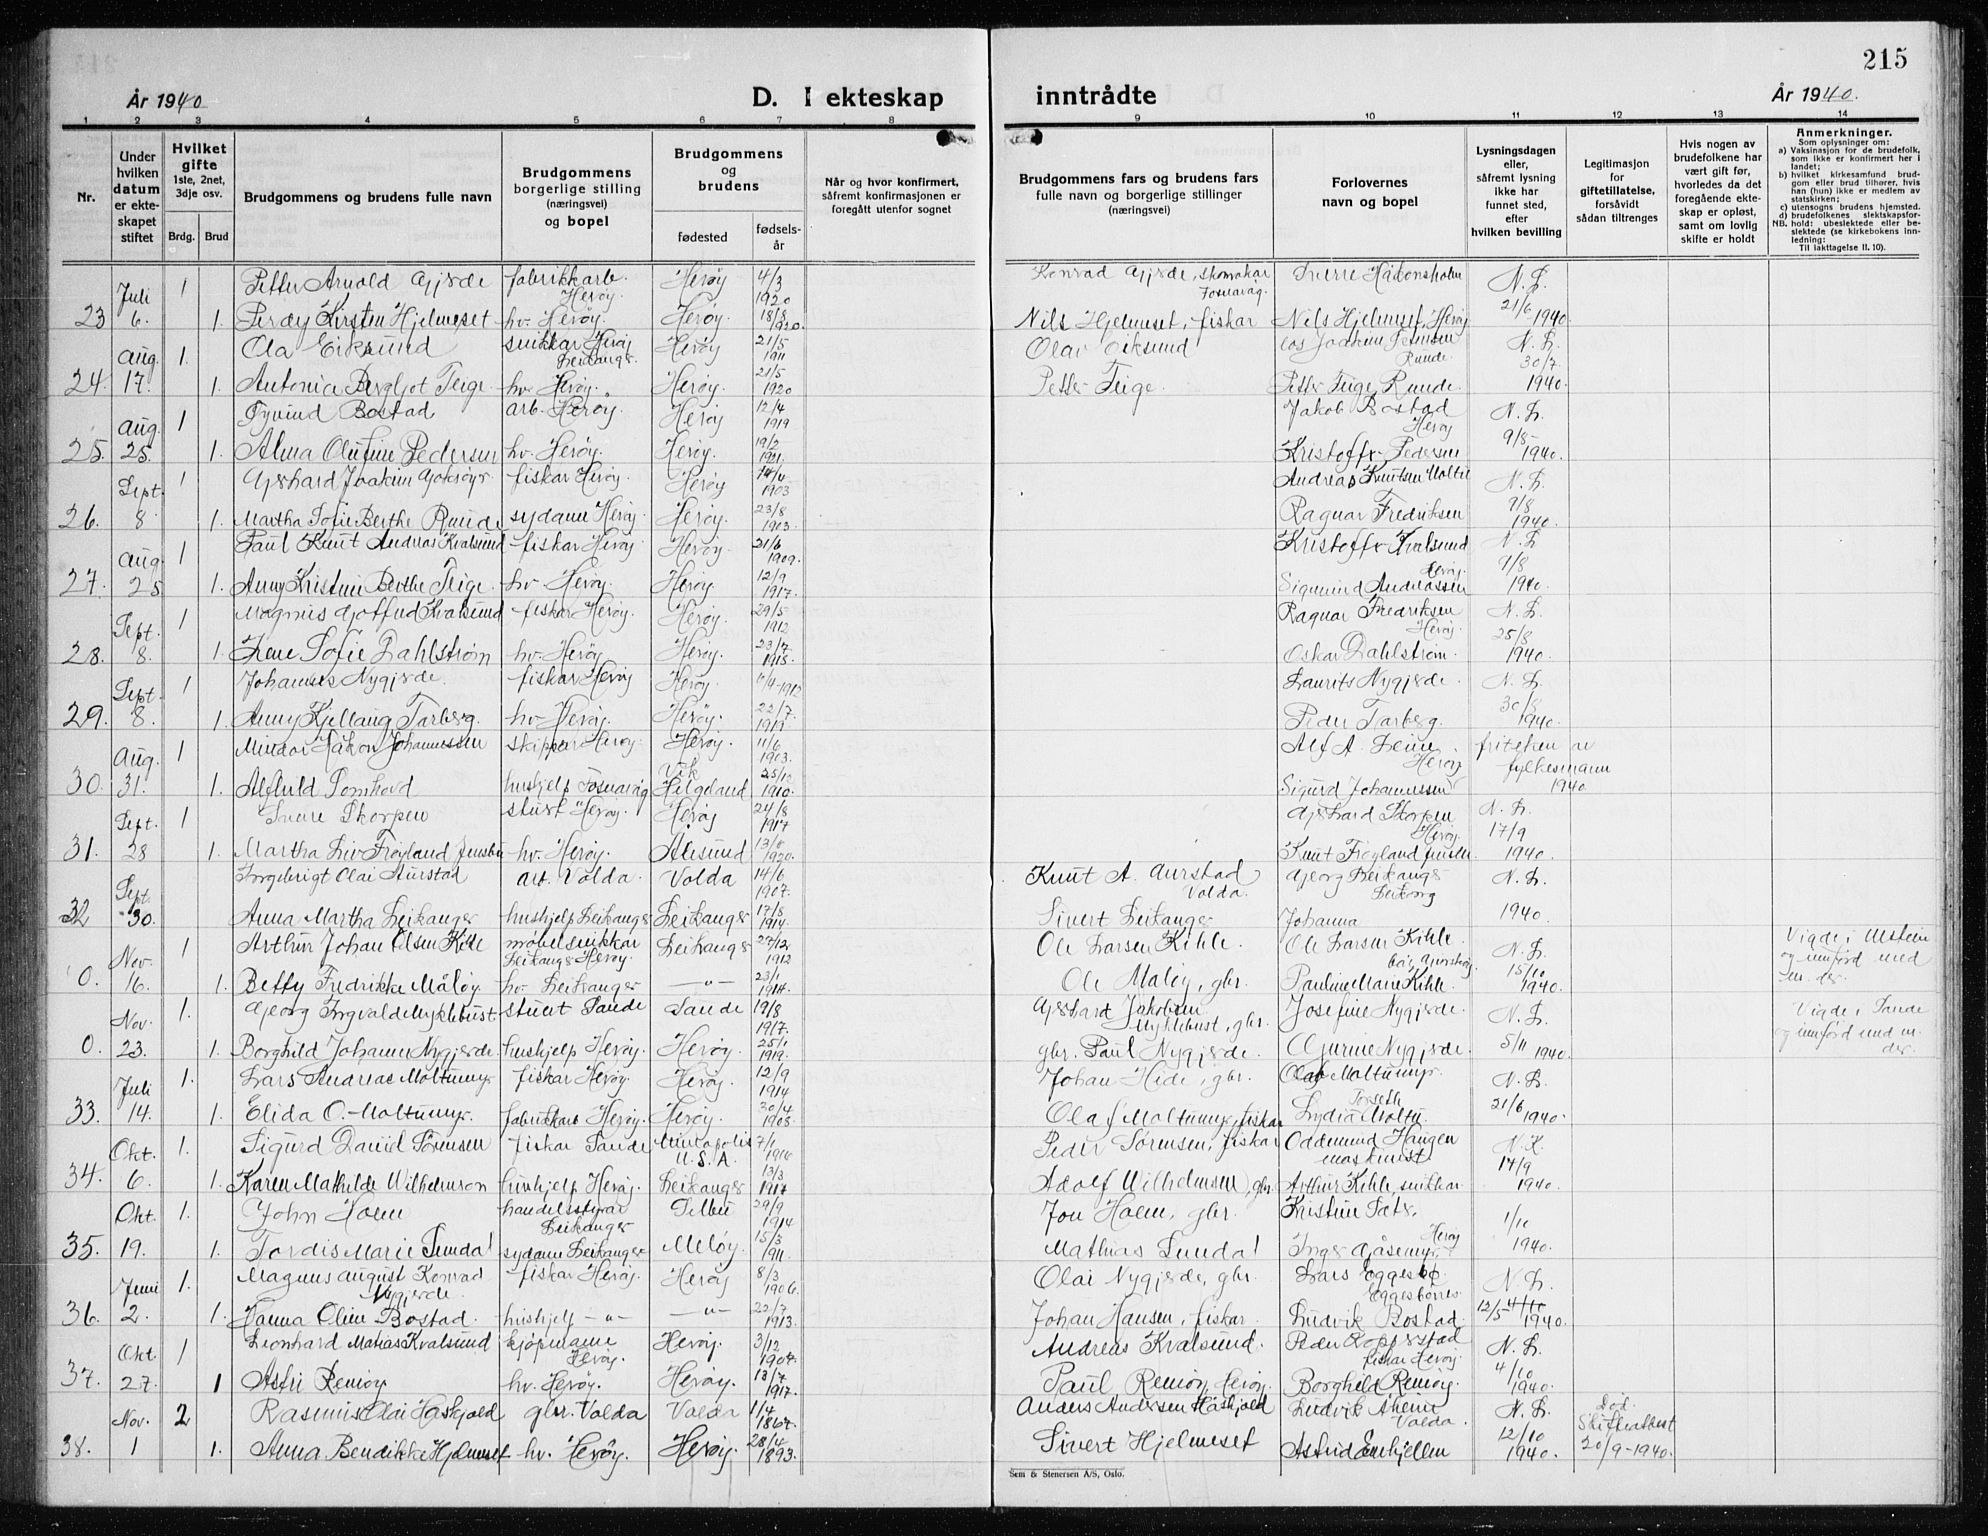 215
År 1940
D. I ekteskap
inntrådte
År 1940.
1 2 3 4 5 6 7 8 9 10 11 12 13 14
Nr.
Under hvilken datum er ekteskapet stiftet
Hvilket gifte
1ste, 2net, 3dje osv.
Brdg. Brud
Brudgommens og brudens fulle navn
Brudgommens borgerlige stilling
(næringsvei)
og bopel
Brudgommens og brudens
fødested
fødsels-år
Når og hvor konfirmert,
såfremt konfirmasjonen er
foregått utenfor sognet
Brudgommens fars og brudens fars
fulle navn og borgerlige stillinger
(næringsvei)
Forlovernes
navn og bopel
Lysningsdagen
eller,
såfremt lysning
ikke har
funnet sted,
efter
hvilken bevilling
Legitimasjon
for
giftetillatelse,
forsåvidt
sådan tiltrenges
Hvis nogen av
brudefolkene har
vært gift før,
hvorledes da det
foregående ekte-
skap er opløst,
samt om lovlig
skifte er holdt
Anmerkninger.
Som oplysninger om:
a) Vaksinasjon for de brudefolk,
som ikke er konfirmert her i
landet;
b) hvilket kirkesamfund brud-
gom eller brud tilhører, hvis
han (hun) ikke er medlem av
statskirken;
c) utensogns brudens hjemsted.
d) brudefolkenes slektskapsfor-
NB. hold: ubeslektede eller be-
slektede (se kirkebokens inn-
ledning:
Til iakttagelse II. 10).
Juli 1 Petter Arnold Gjerde fabrikkarb. Herøy. Herøy 4/3 1920 Konrad Gjerde, skomakar Fosnavåg. Sverre Håkonsholm N. L.
23 6. 1. Perdy Kirsten Hjelmeset hv. Herøy. Herøy. 18/8 1920. Nils Hjelmeset, fiskar Nils Hjelmeset, Herøy 21/6 1940
Aug. 1. Ola Eiksund snikkar Herøy Leikanger. Herøy 21/5 1911 Olav Eiksund Joakim Jensen Runde. N. L. 30/7
24. 17. 1. Antonia Bergljot Teige hv. Herøy. Herøy. 21/5 1920 Petter Teige. Petter Teige, Runde. 1940.
Aug. 1 Øyvind Bostad arb. Herøy. Herøy 12/4 1919 Jakob Bostad Herøy N. L.
25. 25. 1. Alma Olufine Pedersen hv. Herøy. Herøy. 19/2 1921. Kristoffer Pedersen 9/8 1940.
Sept. 1 Gjerhard Joakim fiskar Herøy. Herøy 1903 Andreas Knutsen Moltu N. L.
26. 8 1. Martha Sofie Berthe Runde sydame Herøy Herøy. 23/8 1903. Ragnar Fredriksen 9/8 1940.
Aug. 1 Paul Knut Andreas Kvalsund fiskar Herøy Herøy. 21/6 1909. Kristoffer Kvalsund Herøy. N. L. 9/8
27. 25 1. Anny Kristine Berthe Teige. hv. Herøy. Herøy. 12/9 1917. Sigmund Andreassen 1940.
Sept. 1 Magnus Gotfred Kvalsund fiskar Herøy. Herøy. 29/5 1912 Ragnar Fredriksen Herøy. N. L. 25/8
28. 8. 1 Irene Sofie Dahlstrøm hv. Herøy Herøy. 23/7 1915. Oskar Dahlstrøm. 1940.
Sept. 1 Johannes Nygjerde. fiskar Herøy Herøy. 1912 Laurits Nygjerde. N. L. 30/8
29. 8. 1. Anny Kjellaug Tarberg. hv. Herøy. Herøy. 22/7 Peder Tarberg. 1940.
Aug. 1 Mindor Håkon Johannessen skippar Herøy. Herøy. 11/6 1903. Alf A. Leine. Herøy friteken av fylkesmann
30. 31. 1. Alfhild Tomhord hushjelp Fosnavåg Vik Helgeland 25/10 1910. Sigurd Johannessen 1940
Sept. 1 Sverre Skorpen stuert Herøy. Herøy 24/8 1917 Gjerhard Skorpen Herøy. N. L. 17/9
31. 28 1. Martha Liv Frøyland Jensen hv. Herøy. Ålesund 1920. Knut Frøyland Jensen 1940.
Sept. Ingebrigt Olai Aurstad arb. Volda. Volda 14/6 1907. Knut A. Aurstad Volda. Gjeorg Leikanger Leikong N. L.
32 30. Anna Martha Leikanger hushjelp Leikanger Leikanger 17/8 1914. Sivert Leikanger Johanna 1940.
Nov. 1 Arthur Johan Olsen Kihle møbelsnikkar Leikanger Herøy. Leikanger 27/12 1912 Ole Larsen Kihle. Ole Larsen Kihle N. L. Vigde i Ulstein og innførd med
0. 16. 1. Betty Fredrikke Måløy. hv. Leikanger —"— 23/1 1914. Ole Måløy, gbr. Pauline Marie Kihle. 15/10 1940. m. der.
Nov. 1. Gjeorg Ingvald Myklebust stuert Sande Sande 19/8 1917. Gjerhard Jakobsen Myklebust, gbr. Josefine Nygjerde. N. L. Vigde i Sande
0. 23. 1. Borghild Johanne Nygjerde. hushjelp Herøy. Herøy. 25/1 1919. gbr. Paul Nygjerde. Gjurine Nygjerde. 5/11 1940. og innførd med m. der.
Juli 1. Lars Andreas Moltumyr fiskar Herøy. Herøy. 12/9 1914 Johan Hide, gbr. Olaf Moltumyr. N. L.
33. 14. 1. Elida O. Moltumyr. fabrikkarb Herøy. Herøy. 20/4 1908. Olaf Moltumyr, fiskar Torseth Lydia Moltu 21/6 1940.
Okt. 1. Sigurd Daniel Sørensen fiskar Sande U.S.A. 7/1 Peder Sørensen, fiskar Oddmund Haugen maskinist N. K. 14/9
34. 6. 1. Karen Mathilde Wilhelmson hushjelp Herøy. Leikanger 13/3 1917 Adolf Wilhelmsen, gbr. Arthur Kihle, snikkar. 1940.
Okt. 1. John Hoem handelsstyrar Leikanger 29/9 1914 Jon Hoem, gbr. Kristine Sæter. Herøy 1/10
35. 19. 1. Tordis Marie Sundal sydame Leikanger Meløy. 15/3 1911. Mathias Sundal Inger 1940.
Juni 1. Magnus August Konrad Nygjerde. fiskar Herøy. Herøy 8/3 1906. Olai Nygjerde, gbr. Lars Eggesbø Eggesbønes. N. L.
36. 2. 1. Hanna Oline Bostad. hushjelp —"— —"— 22/7 1913. Johan Hansen, fiskar. Ludvik Bostad 12/5 1940.
Okt. 1 Leonhard Matias Kvalsund kjøpmann Herøy. Herøy. 3/12 1904. Andreas Kvalsund. Peder Koppestad fiskar Herøy. N. L. 4/10
37. 27. 1 Astri Remøy hv. Herøy. Herøy. 13/7 1917. Paul Remøy, Herøy. Borghild Remøy. 1940.
Nov. 2 Rasmus Olai Haskjold gbr. Volda Volda 1/4 1867. Anders Andersen Haskjold Ludvik Aheim Volda. N. L. Død. Skifteattest
38. 1 1. Anna Bendikke Hjelmeset hv. Herøy. Herøy. 28/4 1893. Sivert Hjelmeset Astrid Enkjellen 12/10 1940. 20/9-1940.
Sem & Stenersen A/S, Oslo.